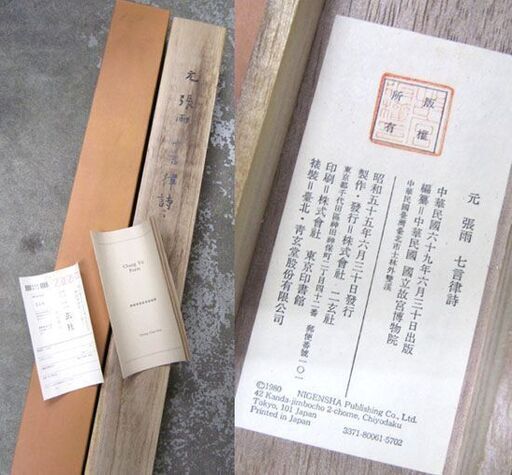 元 張雨 七言律詩
Chang Yü
Poem
版權
所有
元 張雨 七言律詩
中華民國六十九年六月三十日出版
編纂=中華民國 國立故宮博物院
中華民國臺灣臺北市士林外雙溪
昭和五十五年六月三十日發行
製作・發行=株式會社 二玄社
東京都千代田區神田神保町二丁目四十二番 郵便番號一〇一
印刷=株式會社 東京印書館
裱裝=臺北・青玄堂股份有限公司
©1980 NIGENSHA Publishing Co., Ltd.
42 Kanda-jimbocho 2-chome, Chiyodaku
Tokyo, 101 Japan
Printed in Japan
3371-80061-5702